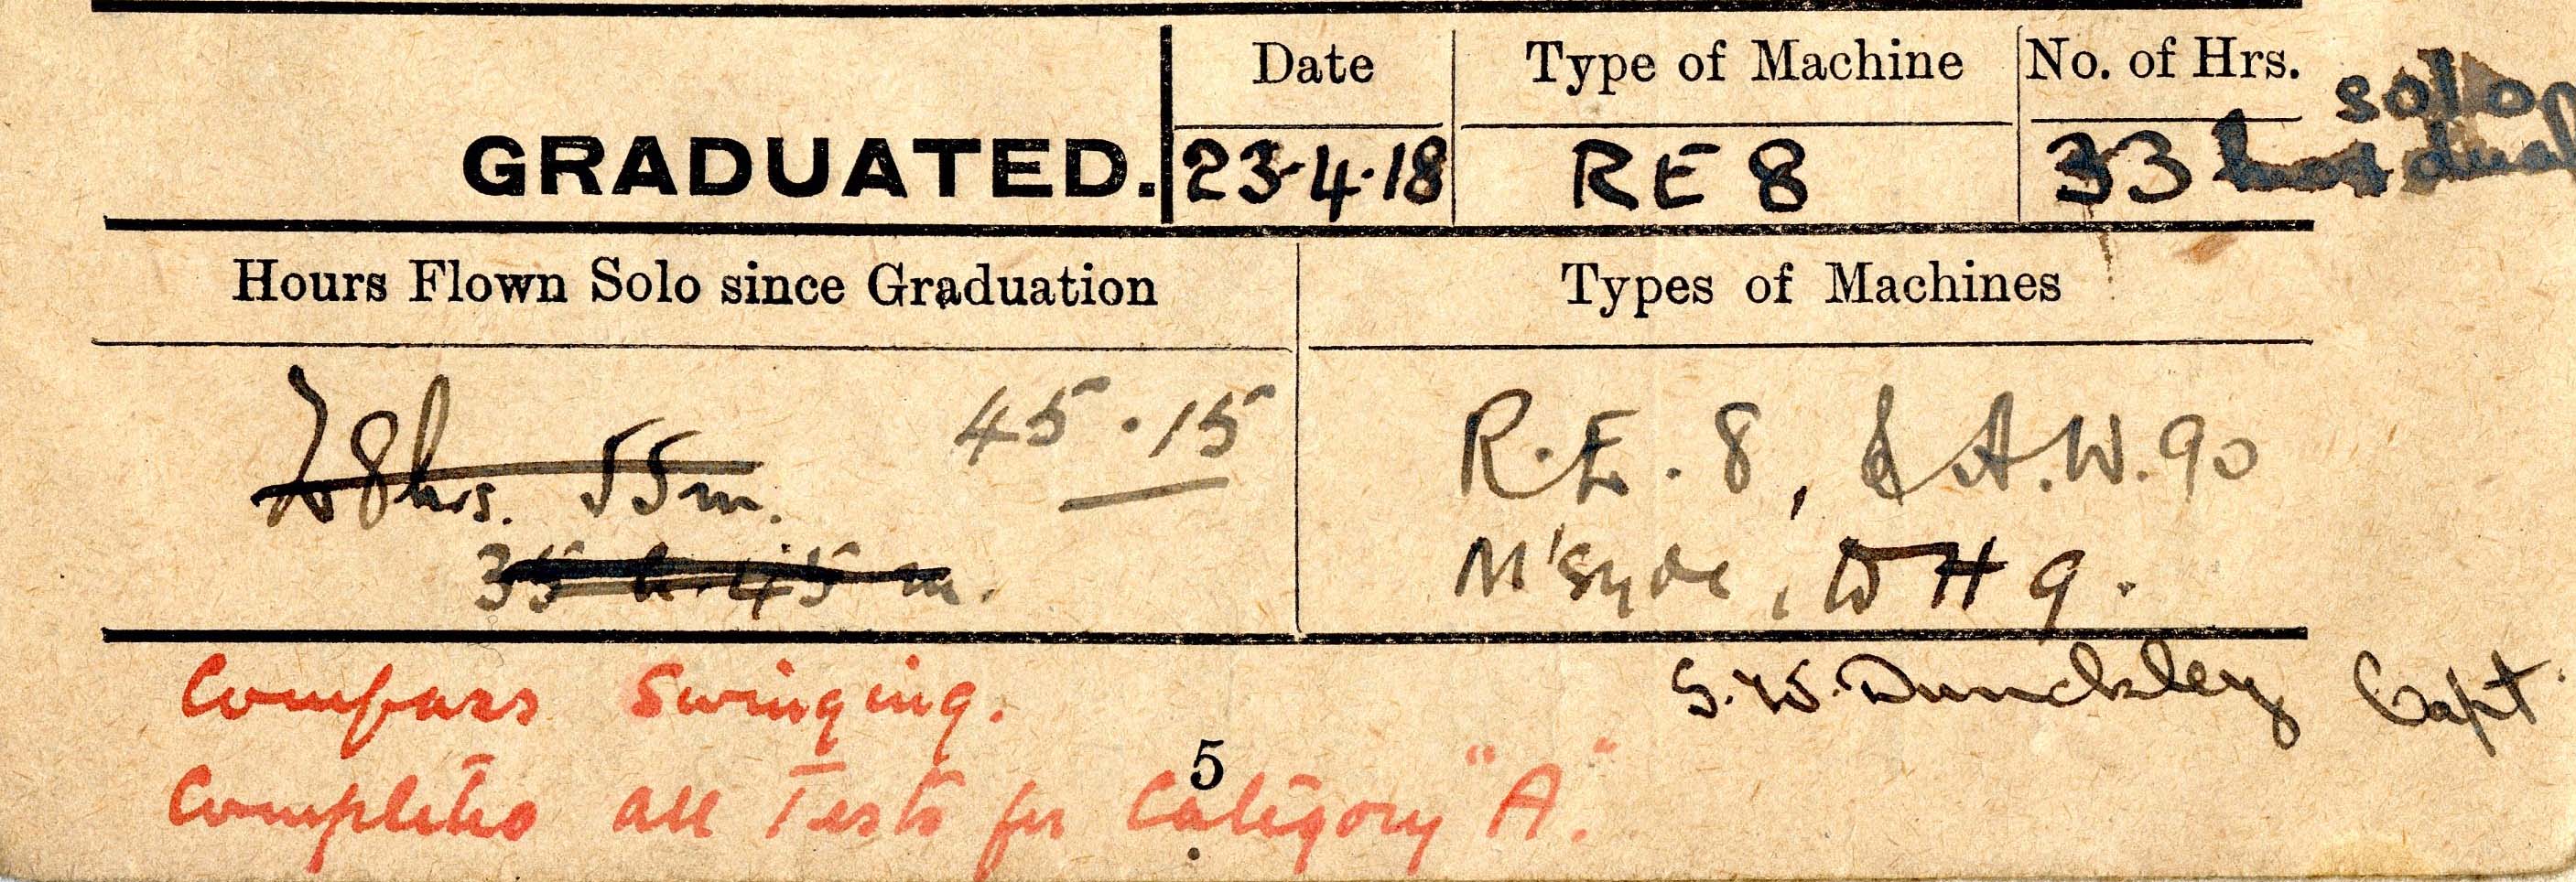 Date Type of Machine No. of Hrs. solo
GRADUATED. 23-4-18 RE 8 33 dual
Hours Flown Solo since Graduation Types of Machines
28hrs. 55m. 45.15 R.E. 8, & A.W. 90
35 h. 45 m. M'Syde, DH 9.
S.W. Dunckley Capt.
Compass Swinging.
5
Completed all Tests for Category "A".